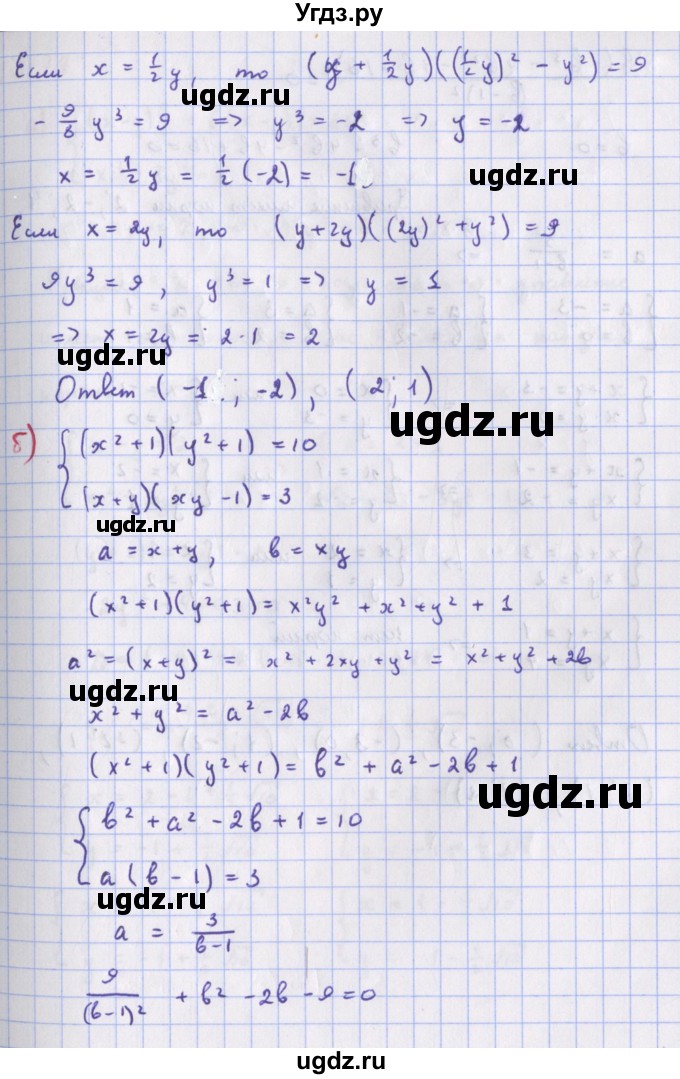 Угдз.ру
Если x = 1/2 y, то (y + 1/2 y)((1/2 y)² - y²) = 9
ugdz.ru
- 9/8 y³ = 9 => y³ = -2 => y = -2
ugdz.ru
x = 1/2 y = 1/2 (-2) = -1.
Если x = 2y, то (y + 2y)((2y)² + y²) = 9
9y³ = 9, y³ = 1 => y = 1
=> x = 2y = 2·1 = 2
ugdz.ru
Ответ (-1 ; -2), (2; 1)
ugdz.ru
б) { (x² + 1)(y² + 1) = 10
(x + y)(xy - 1) = 3
ugdz.ru
a = x + y, b = xy
(x² + 1)(y² + 1) = x²y² + x² + y² + 1
a² = (x + y)² = x² + 2xy + y² = x² + y² + 2b
ugdz.ru
x² + y² = a² - 2b
(x² + 1)(y² + 1) = b² + a² - 2b + 1
ugdz.ru
{ b² + a² - 2b + 1 = 10
a(b - 1) = 3
ugdz.ru
a = 3/(b-1)
9/(b-1)² + b² - 2b - 9 = 0
ugdz.ru